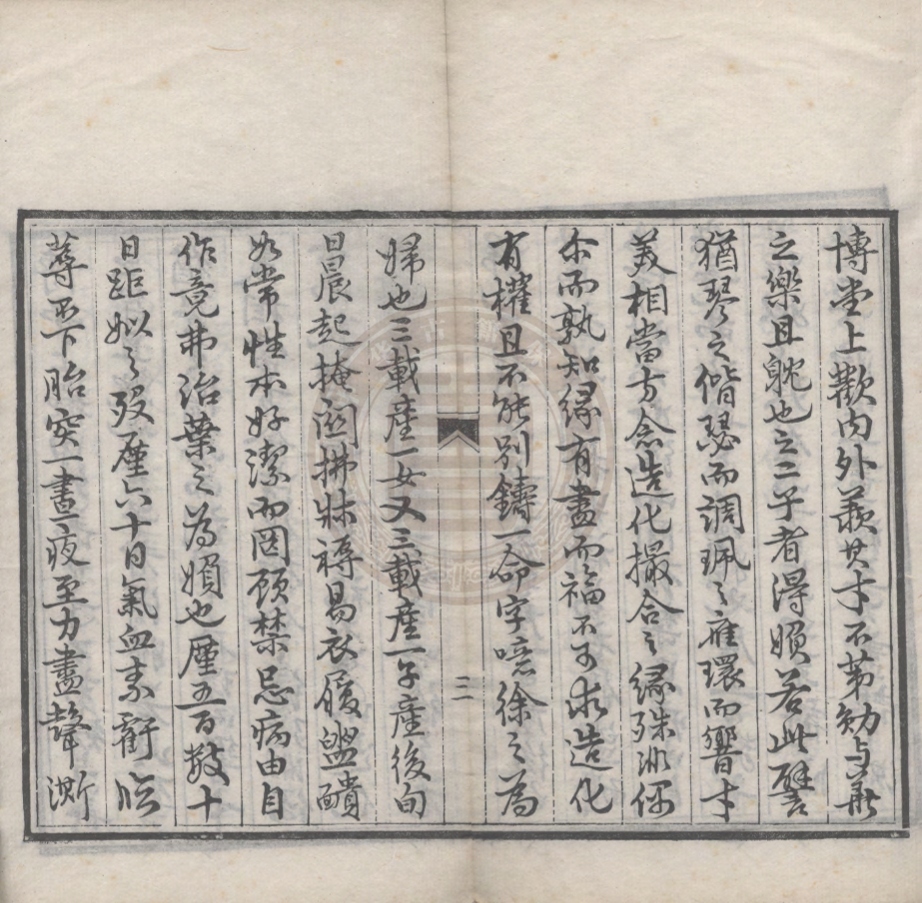 博堂上歡內外羨其才不第勉与
之樂且躭也之二子者得嬪若此譬
猶琴之偕瑟而調珮之應環而響才
美相當方念造化撮合之緣殊非偶
尒而孰知緣有盡而福不可求造化
有權且不能別鑄一命字噫徐之為
三
婦也三載產一女又三載產一子產後旬
日晨起掩闼拂牀褥易衣履盥靧
如常性本好潔而罔顧禁忌病由自
作竟弗治葉之為嬪也厪五百數十
日距姒之歿厪六十日氣血素虧臨
蓐不下胎突一晝夜至力盡聲澌